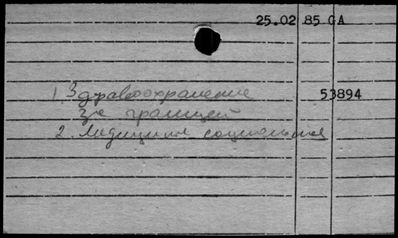 25.02 85 GA
1 Здравоохранение 53894
за границей
2. Медицина социальная